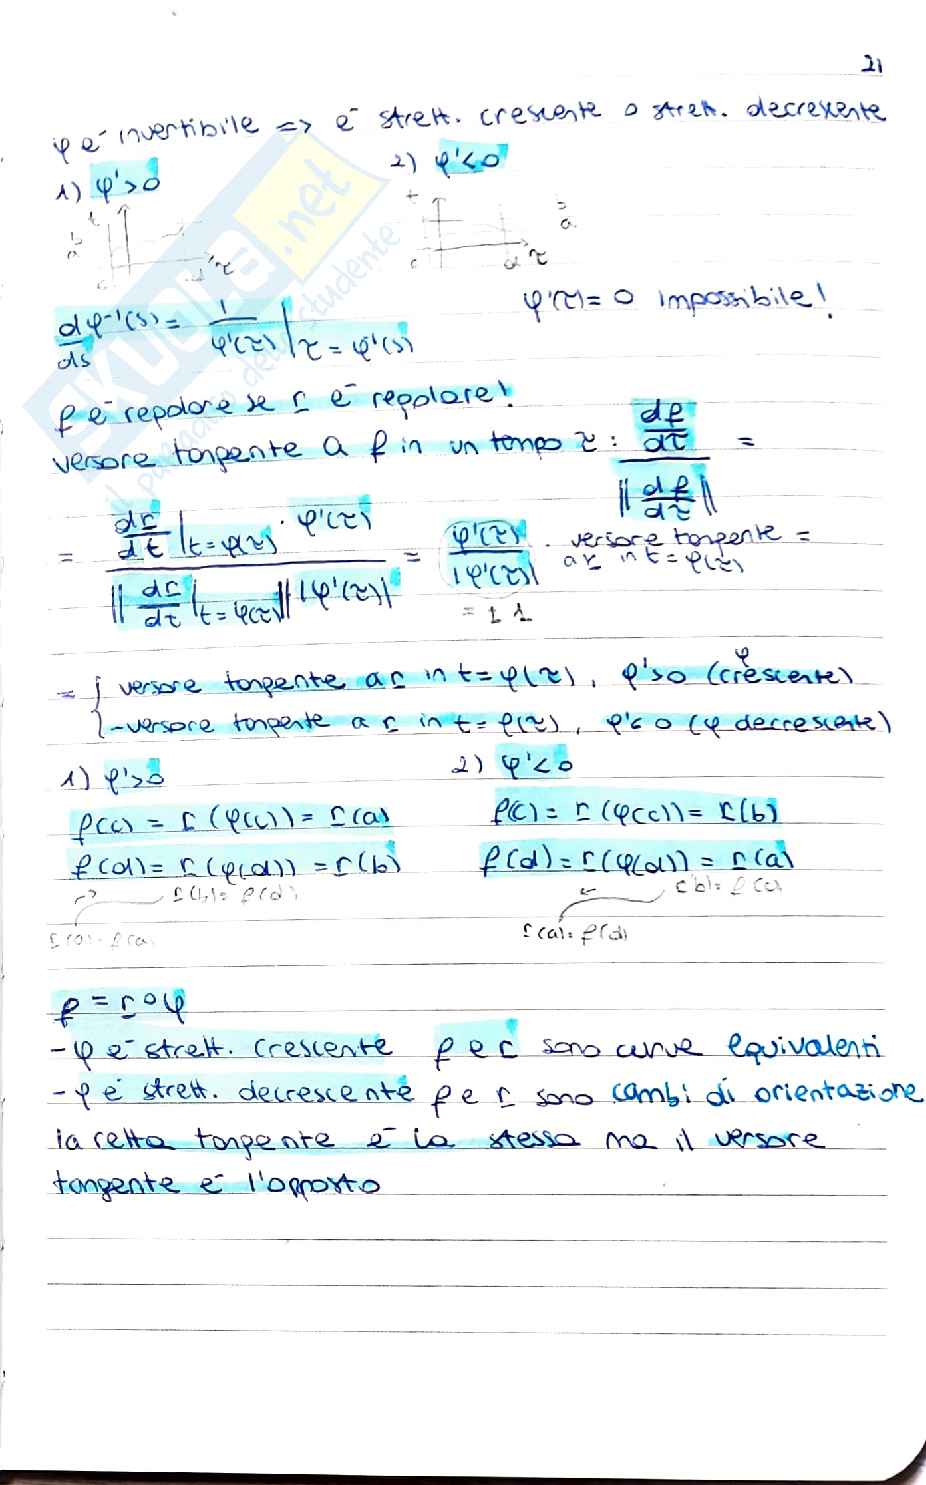 21
φ è invertibile => è strett. crescente o strett. decrescente
1) φ'>0
2) φ'<0
t
b
a
c
d
τ
t
b
a
c
d
τ
φ'(τ)=0 impossibile!
d/ds φ⁻¹(s) = 1/φ'(τ) | τ = φ'(s)
f è regolare se r è regolare!
versore tangente a f in un tempo τ : (df/dτ) / ||df/dτ|| =
= (dr/dt | t=φ(τ) · φ'(τ)) / (||dr/dτ | t=φ(τ)|| |φ'(τ)|) = φ'(τ)/|φ'(τ)| · versore tangente a r in t=φ(τ) =
= ± 1
= { versore tangente a r in t=φ(τ), φ'>0 (φ crescente)
-versore tangente a r in t=φ(τ), φ'<0 (φ decrescente)
1) φ'>0
2) φ'<0
f(c) = r(φ(c)) = r(a)
f(d) = r(φ(d)) = r(b)
r(b) = f(d)
f(c) = r(φ(c)) = r(b)
f(d) = r(φ(d)) = r(a)
r(b) = f(c)
r(a) = f(d)
f = r∘φ
- φ è strett. crescente f e r sono curve equivalenti
- φ è strett. decrescente f e r sono cambi di orientazione
la retta tangente è la stessa ma il versore
tangente è l'opposto
SKUOLA.net
il paradiso dello studente